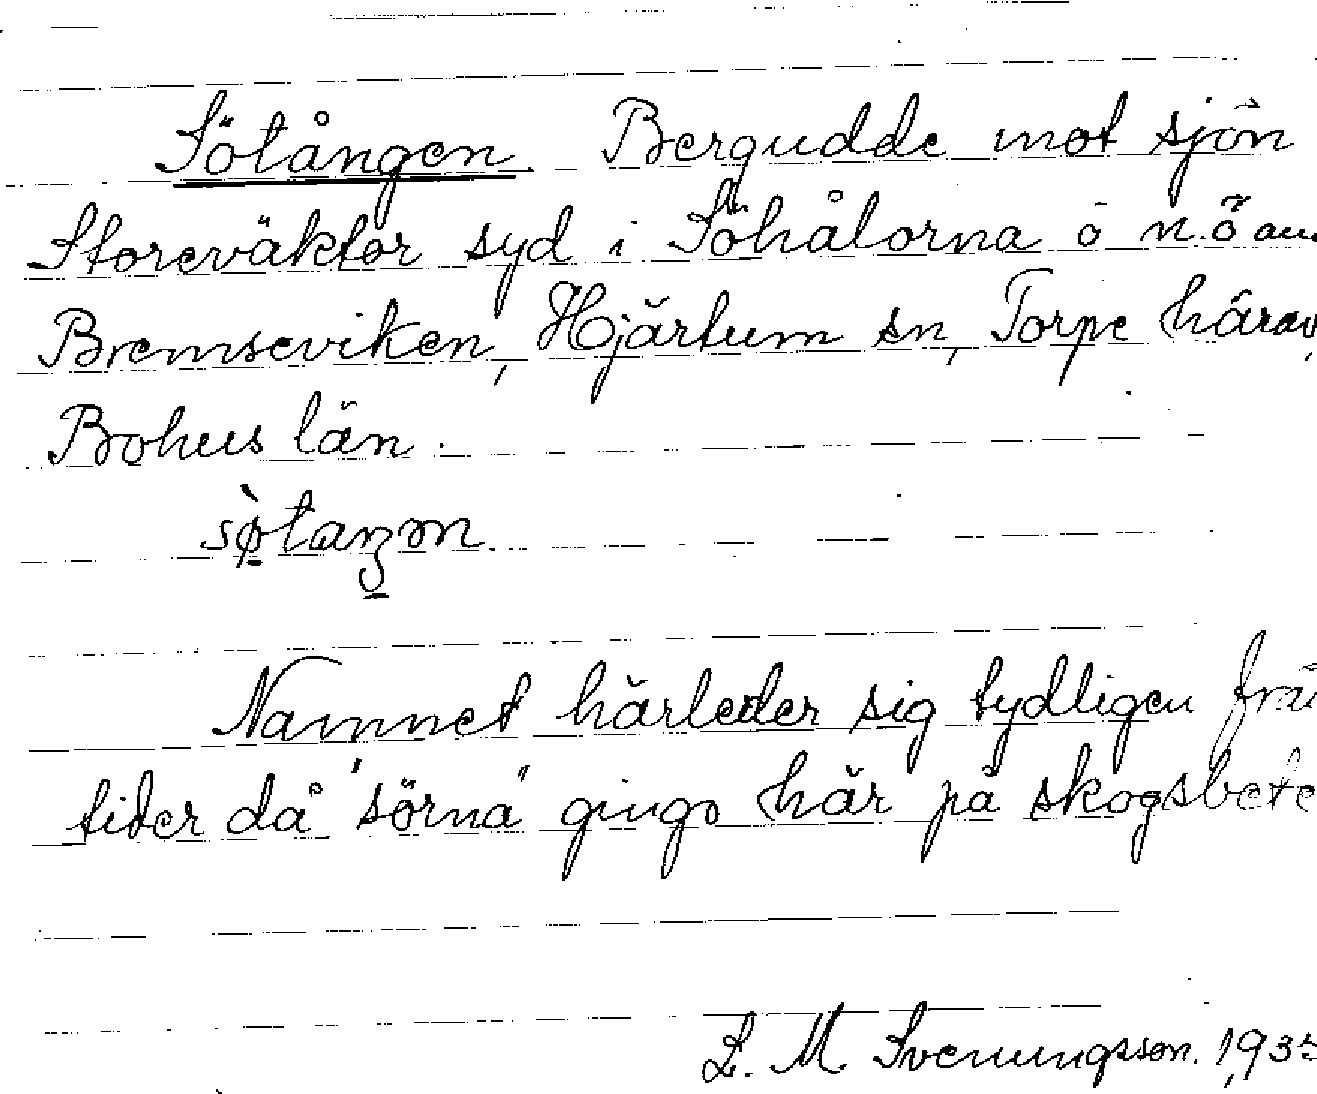 Sötången. Bergudde mot sjön
Storeväktor syd i Söhålorna ö n.ö om
Bremseviken, Hjärtum sn, Torpe härad,
Bohus län.
Namnet härleder sig tydligen från
tider då "sörna" gingo här på skogsbete
L. M. Svenungsson. 1935